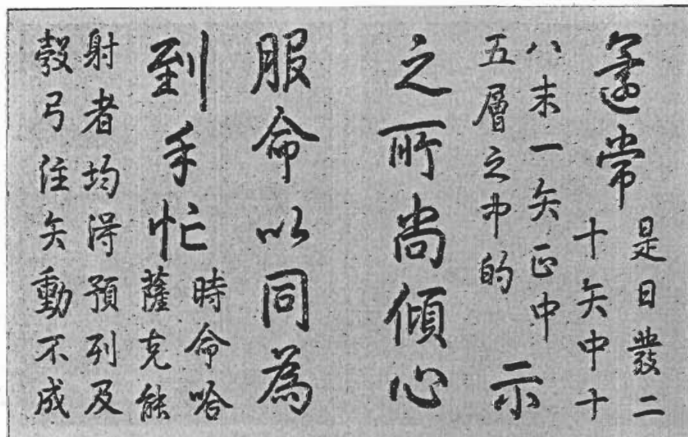 逾常
是日發二
十矢中十
八末一矢正中
五層之中的
示
之所尚傾心
服命以同為
到手忙
時命哈
薩克能
射者均得預列及
彀弓注矢動不成